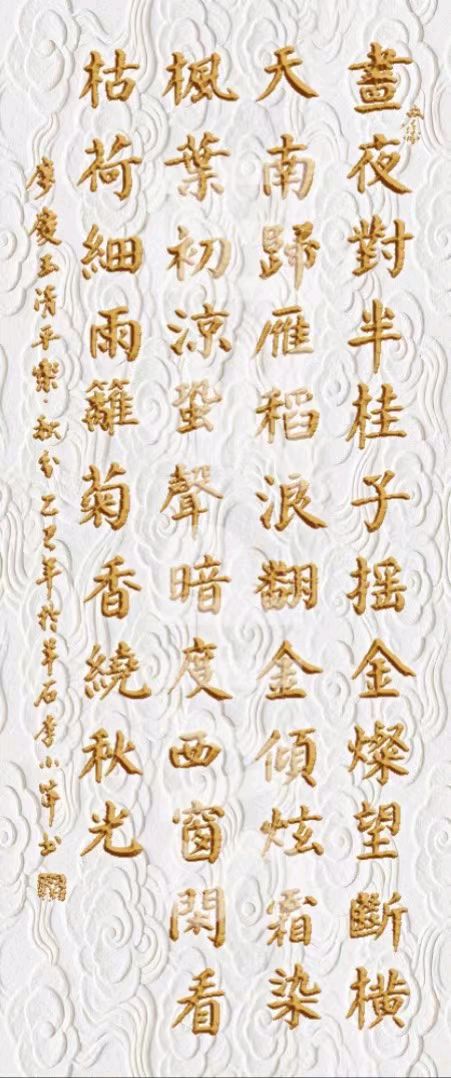 晝夜對半桂子摇金燦望斷橫
天南歸雁稻浪翻金傾炫霜染
楓葉初涼蛩聲暗度西窗閑看
枯荷細雨籬菊香繞秋光
廖慶玉清平樂·秋分 乙巳年於羊石李小華书